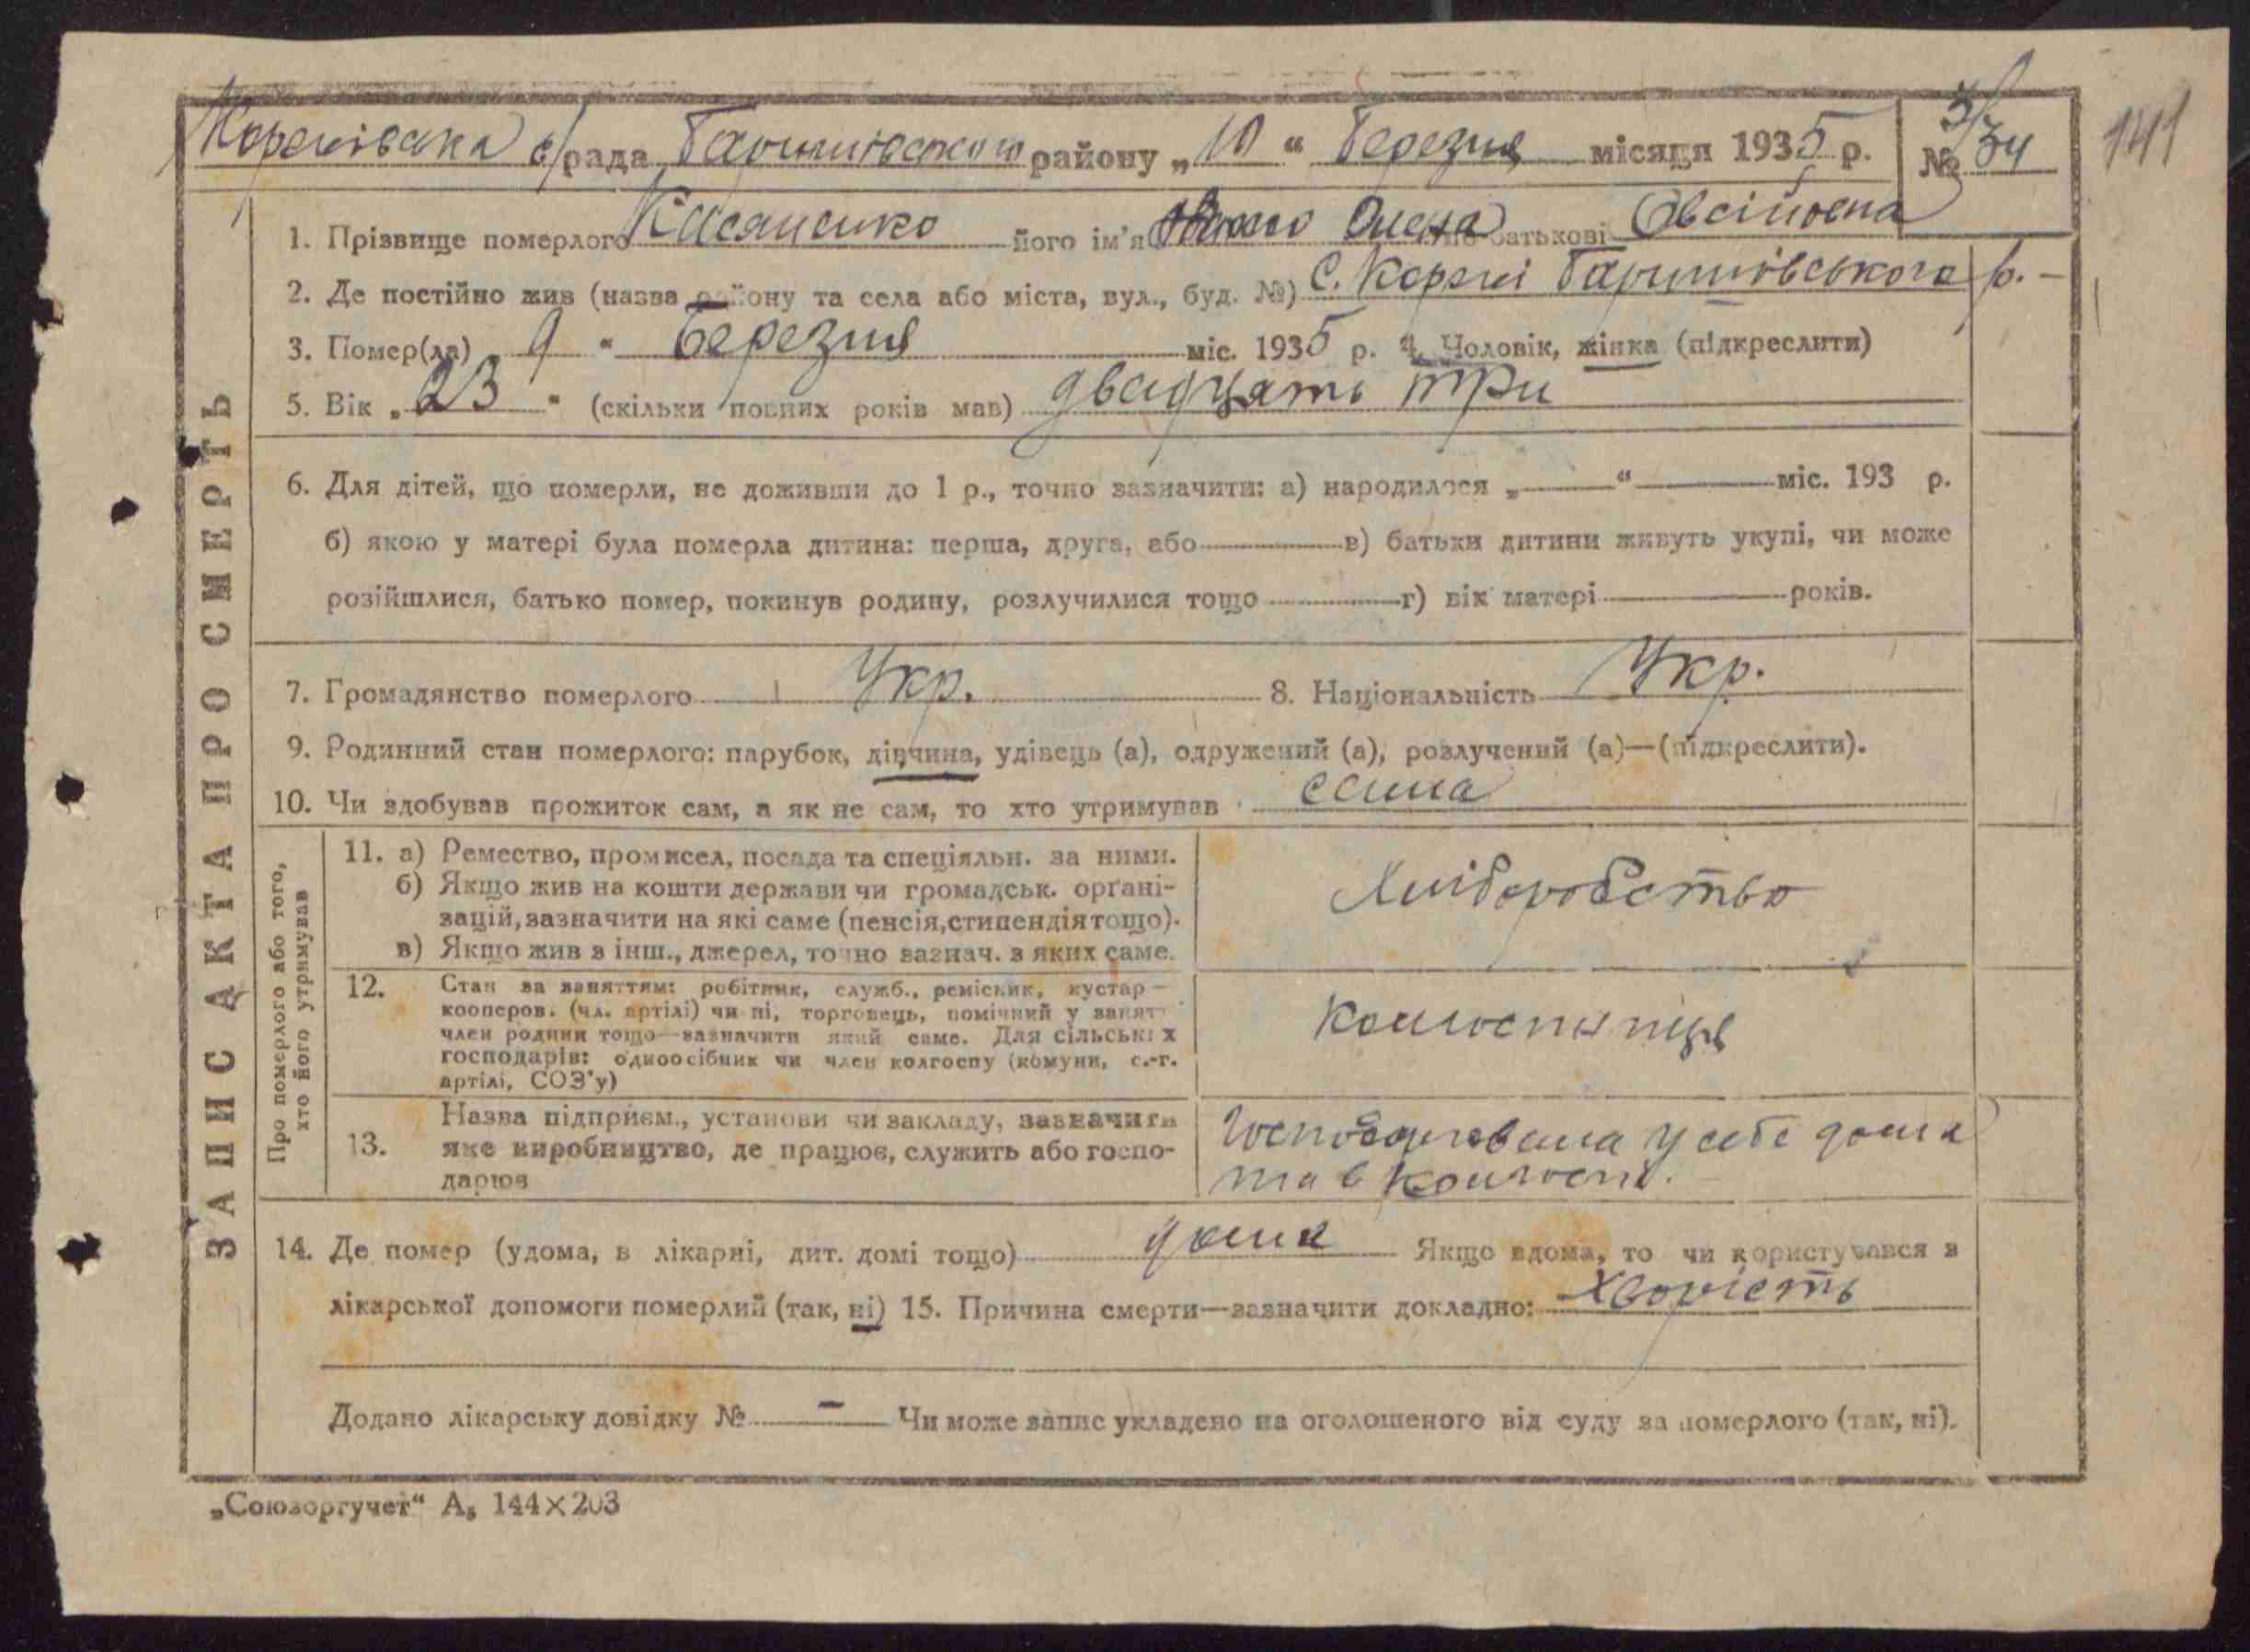 Коржівська с/рада Баришівського району „10“ Березня місяця 1935 р. № 3/34
141
1. Прізвище померлого Касяненко його ім'я Олена по батькові Овсіївна
2. Де постійно жив (назва району та села або міста, вул., буд. №) С. Коржі Баришівського р. –
3. Помер(ла) 9 “ Березня міс. 1935 р. 4. Чоловік, жінка (підкреслити)
5. Вік „23“ (скільки повних років мав) двадцять три
6. Для дітей, що померли, не доживши до 1 р., точно зазначити: а) народилося „—“ — міс. 193 р.
б) якою у матері була померла дитина: перша, друга, або — в) батьки дитини живуть укупі, чи може
розійшлися, батько помер, покинув родину, розлучилися тощо — г) вік матері — років.
7. Громадянство померлого Укр. 8. Національність Укр.
9. Родинний стан померлого: парубок, дівчина, удівець (а), одружений (а), розлучений (а)—(підкреслити).
10. Чи здобував прожиток сам, а як не сам, то хто утримував сама
ЗАПИС АКТА ПРО СМЕРТЬ
Про померлого або того,
хто його утримував
11. а) Ремество, промисел, посада та спеціяльн. за ними.
б) Якщо жив на кошти держави чи громадськ. орґані-
зацій, зазначити на які саме (пенсія, стипендія тощо).
в) Якщо жив з інш., джерел, точно зазнач. з яких саме.
Хліборобство
12. Стан за заняттям: робітник, служб., ремісник, кустар —
кооперов. (чл. артілі) чи ні, торговець, помічний у занятт
член родини тощо—зазначити який саме. Для сільських
господарів: одноосібник чи член колгоспу (комуни, с.-г.
артілі, СОЗ'у)
колгоспниця
13. Назва підприєм., установи чи закладу, зазначити
яке виробництво, де працює, служить або госпо-
дарює
Господарювала у себе дома
та в колгоспі.
14. Де помер (удома, в лікарні, дит. домі тощо) дома Якщо вдома, то чи користувався з
лікарської допомоги померлий (так, ні) 15. Причина смерти—зазначити докладно: хворість
Додано лікарську довідку № – Чи може запис укладено на оголошеного від суду за померлого (так, ні).
„Союзоргучет“ А₅ 144×203